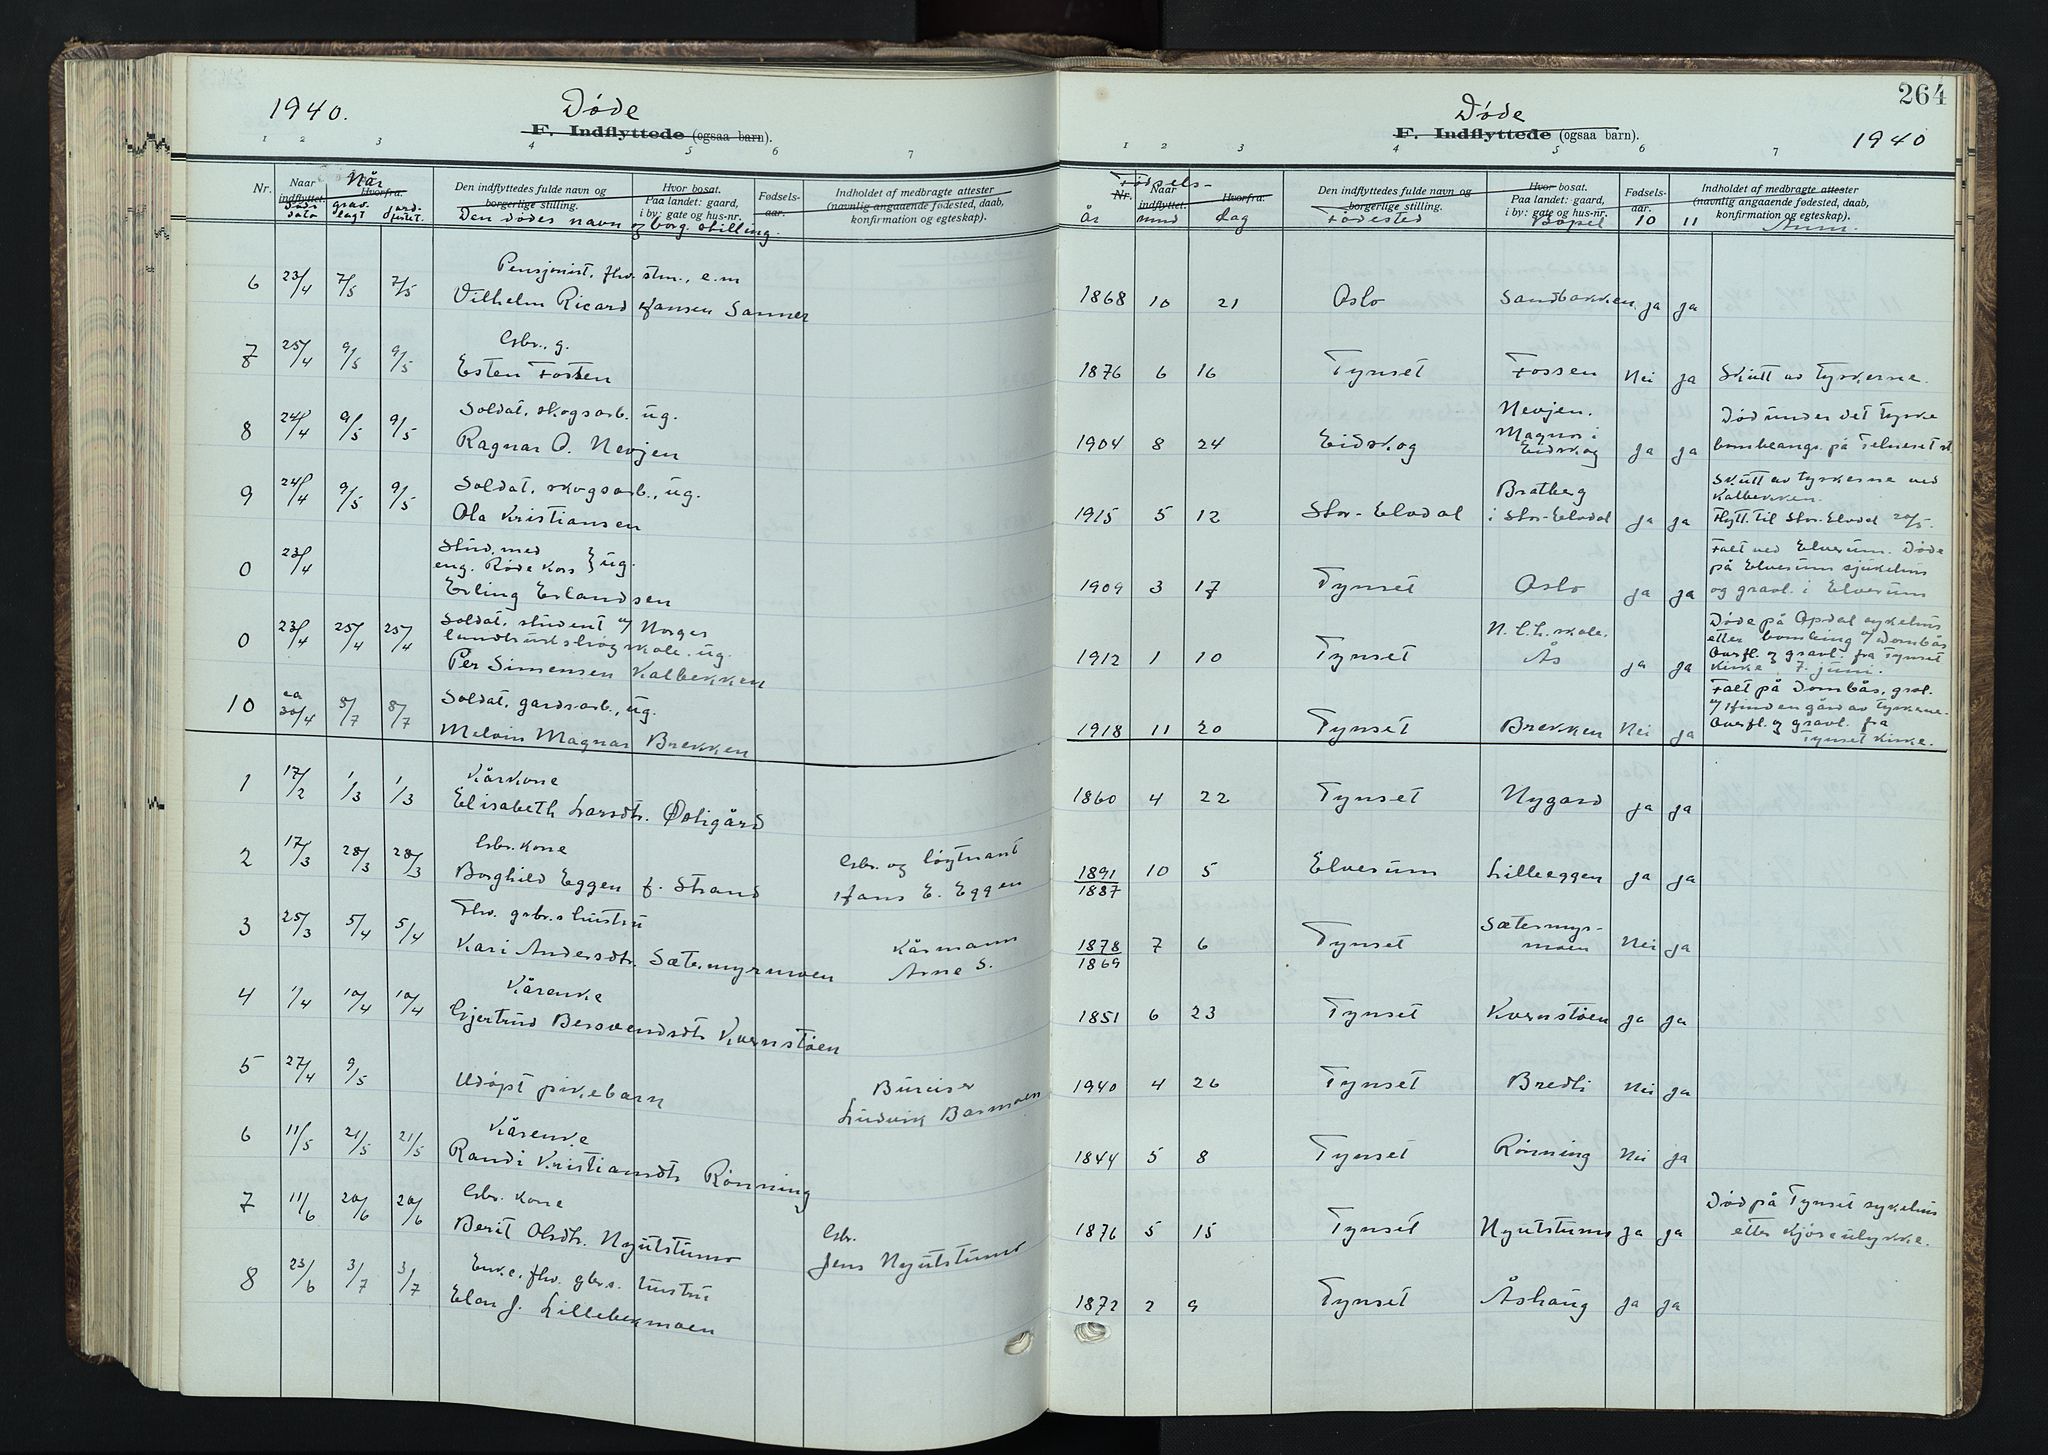 1940.
Døde
F. Indflyttede (ogsaa barn).
1 2 3 4 5 7
Nr.
Naar indflyttet.
Døds dato
Når
Hvorfra.
grav- lagt
jord- festet.
Den indflyttedes fulde navn og borgerlige stilling.
Hvor bosat. Paa landet: gaard, i by: gate og hus-nr.
Den dødes navn og borg. stilling.
Fødsels- aar.
Indholdet af medbragte attester (navnlig angaaende fødested, daab, konfirmation og egteskap).
Pensjonist, fhv. stm., e.m
6 23/4 7/5 7/5 Vilhelm Ricard Hansen Sanner
Gbr., g.
7 25/4 9/5 9/5 Esten Fossen
Soldat, skogsarb. ug.
8 24/4 9/5 9/5 Ragnar O. Nevjen
Soldat, skogsarb., ug.
9 24/4 9/5 9/5 Ola Kristiansen
Stud. med
eng. Røde Kors } ug.
0 23/4 Erling Erlandsen
Soldat, student v/ Norges
landbrukshøgskole. ug.
0 23/4 25/4 25/4 Per Simensen Kalbekken
Soldat, gardsarb., ug.
10 ca 30/4 8/7 8/7 Melvin Magnar Brekken
Kårkone
1 17/2 1/3 1/3 Elisabeth Larsdtr. Østigård
Gbr. kone
2 17/3 28/3 28/3 Borghild Eggen f. Strand Gbr. og løytnant
Hans E. Eggen
Fhv. gbr.s hustru
3 25/3 5/4 5/4 Kari Andersdtr. Sætermyrmoen Kårmann
Arne S.
Kårenke
4 1/4 10/4 10/4 Gjertrud Bersvendsdtr Kvernstøen
5 27/4 9/5 Udøpt pikebarn Bureiser
Ludvik Barmoen
Kårenke
6 11/5 21/5 21/5 Randi Kristiansdtr Rønning
Gbr. kone
7 11/6 20/6 20/6 Berit Olsdtr. Nyutstumo Gbr.
Jens Nyutstumo
Enke, fhv. gbr.s. hustru
8 23/6 3/7 3/7 Elen J. Lillebekmoen
264
Døde
F. Indflyttede (ogsaa barn).
1940
1 2 3 4 5 6 7
Fødsels-
Nr.
Naar indflyttet.
Hvorfra.
år mnd dag
Den indflyttedes fulde navn og borgerlige stilling.
Fødested
Hvor bosat. Paa landet: gaard, i by: gate og hus-nr.
Bopel
Fødsels- aar.
10 11
Indholdet af medbragte attester (navnlig angaaende fødested, daab, konfirmation og egteskap).
Anm.
1868 10 21 Oslo Sandbakken ja ja
1876 6 16 Tynset Fossen Nei ja Skutt av tyskerne.
1904 8 24 Eidskog Nevjen. Magnor i Eidskog ja ja Død under det tyske
bombeangr. på Telneset st
1915 5 12 Stor-Elvdal Bratberg i Stor-Elvdal ja ja Skutt av tyskerne ved
Kalbekken.
Flytt. til Stor-Elvdal 20/5.
1909 3 17 Tynset Oslo ja ja Falt ved Elverum. Døde
på Elverum sjukehus
og gravl. i Elverum
1912 1 10 Tynset N. L. H. skole. Ås ja ja Døde på Opdal sykehus
etter bombing v/ Dombås
Overfl. og gravl. fra Tynset
kirke 7. juni.
1918 11 20 Tynset Brekken Nei ja Falt på Dombås, gravl.
v/ Hindengård av tyskerne.
Overfl. og gravl. fra
Tynset kirke.
1860 4 22 Tynset Nygard ja ja
1891 10 5 Elverum Lilleeggen ja ja
1887
1878 7 6 Tynset Sætermyr-
moen Nei ja
1869
1851 6 23 Tynset Kvernstøen ja ja
1940 4 26 Tynset Bredli Nei ja
1844 5 8 Tynset Rønning Nei ja
1876 5 15 Tynset Nyutstumo ja ja Død på Tynset sykehus
etter kjøreulykke.
1872 2 9 Tynset Åshaug ja ja